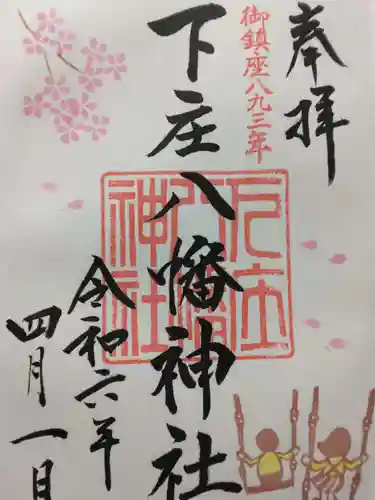 奉拝
御鎮座八九三年
下庄八幡神社
令和六年
四月一日
下庄八幡神社